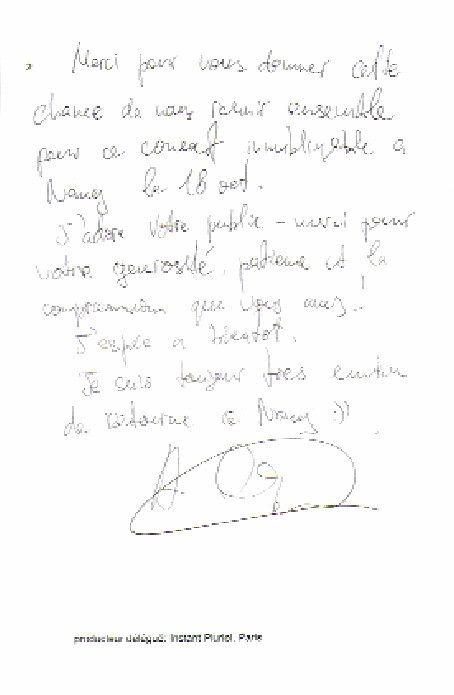 Merci pour nous donner cette
chance de nous reunir ensemble
pour ce concert innibliyable a
Nancy le 18 oct.
J'adore votre public - merci pour
votre generosité, patience et la
comprennsion que vous avez!
J'espere a bientot.
Je suis toujour tres
de retourne a Nancy :))
producteur délégué: Instant Pluriel, Paris